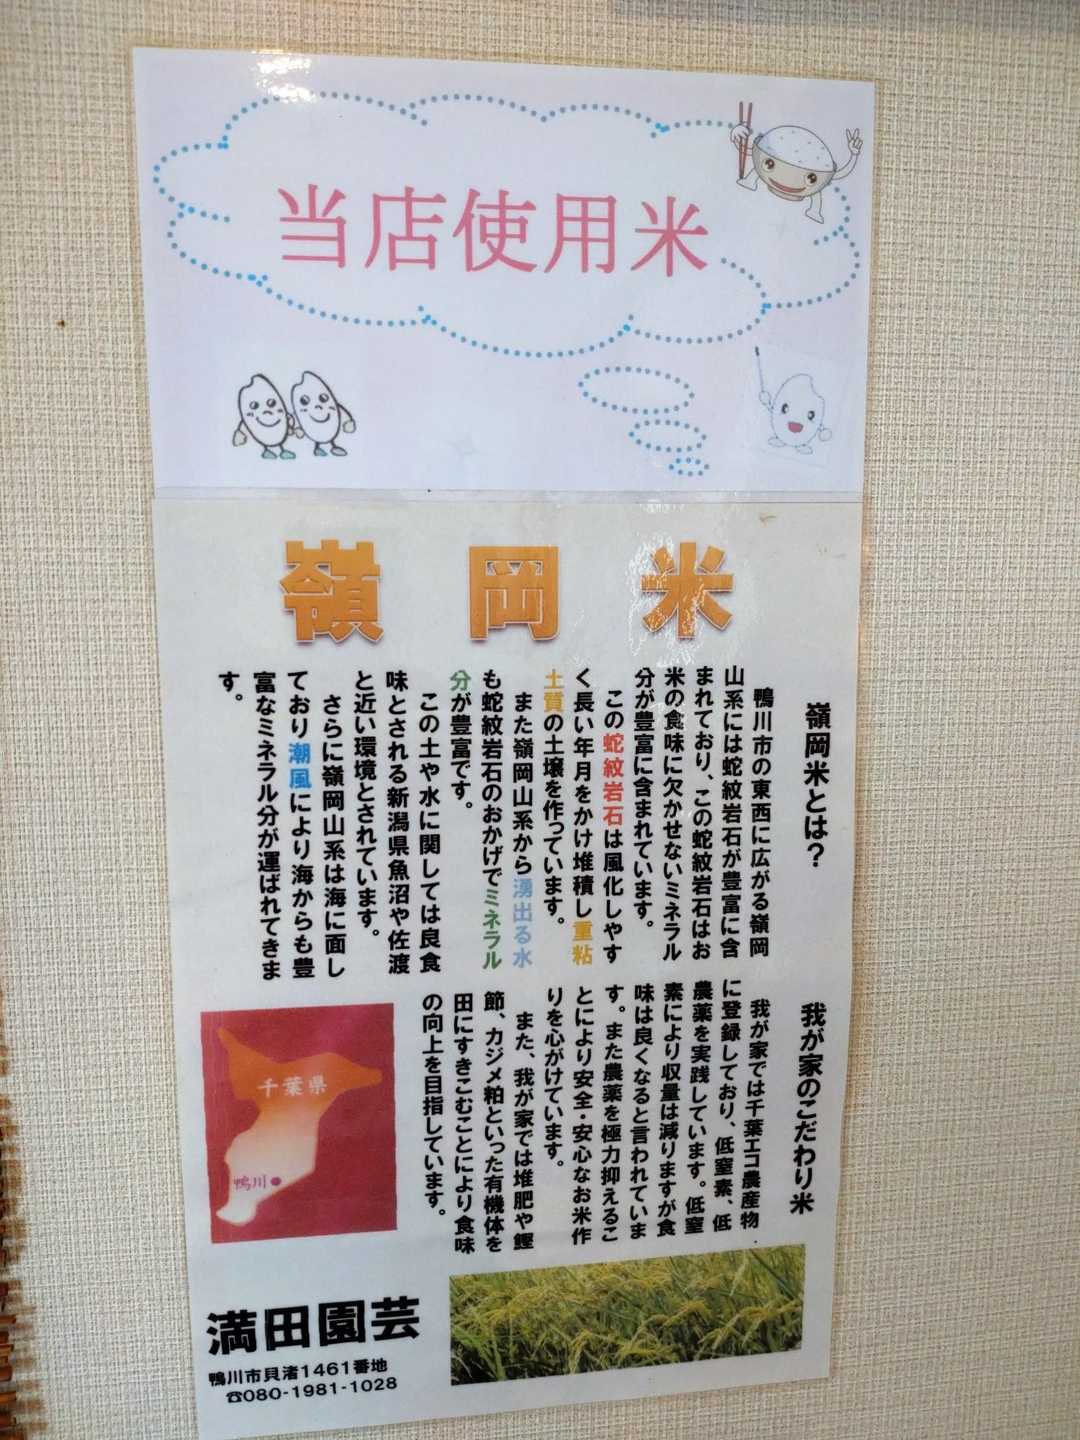 当店使用米
嶺岡米
嶺岡米とは？
鴨川市の東西に広がる嶺岡
山系には蛇紋岩石が豊富に含
まれており、この蛇紋岩石はお
米の食味に欠かせないミネラル
分が豊富に含まれています。
この蛇紋岩石は風化しやす
く長い年月をかけ堆積し重粘
土質の土壌を作っています。
また嶺岡山系から湧出る水
も蛇紋岩石のおかげでミネラル
分が豊富です。
この土や水に関しては良食
味とされる新潟県魚沼や佐渡
と近い環境とされています。
さらに嶺岡山系は海に面し
ており潮風により海からも豊
富なミネラル分が運ばれてきま
す。
我が家のこだわり米
我が家では千葉エコ農産物
に登録しており、低窒素、低
農薬を実践しています。低窒
素により収量は減りますが食
味は良くなると言われていま
す。また農薬を極力抑えるこ
とにより安全・安心なお米作
りを心がけています。
また、我が家では堆肥や鰹
節、カジメ粕といった有機体を
田にすきこむことにより食味
の向上を目指しています。
千葉県
鴨川
満田園芸
鴨川市貝渚1461番地
☎080-1981-1028